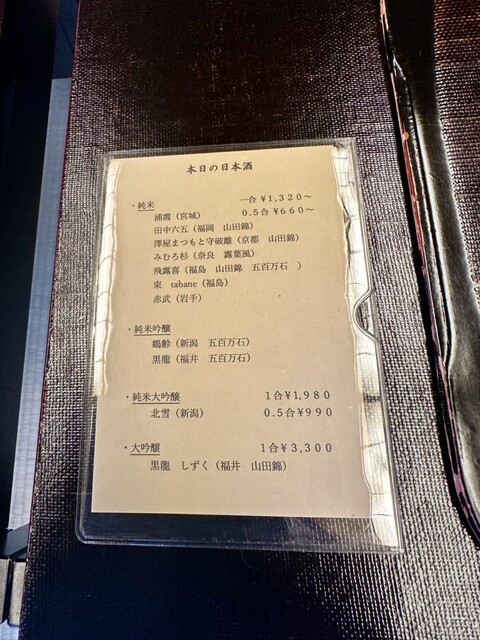 本日の日本酒
・純米　一合 ¥1,320～
浦霞（宮城）　0.5合 ¥660～
田中六五（福岡　山田錦）
澤屋まつもと守破離（京都　山田錦）
みむろ杉（奈良　露葉風）
飛露喜（福島　山田錦　五百万石　）
東　tabane（福島）
赤武（岩手）
・純米吟醸
鶴齢（新潟　五百万石）
黒龍（福井　五百万石）
・純米大吟醸　1合¥1,980
北雪（新潟）　0.5合¥990
・大吟醸　1合¥3,300
黒龍　しずく（福井　山田錦）